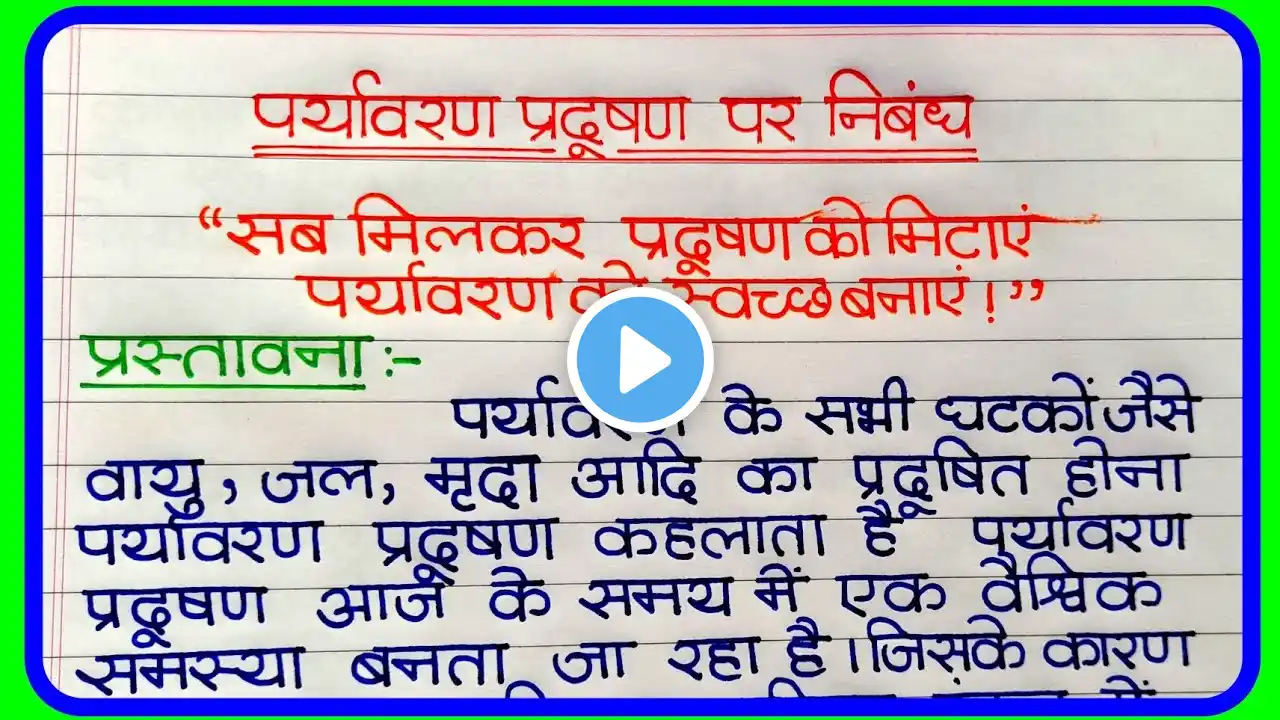 पर्यावरण प्रदूषण पर निबंध
“सब मिलकर प्रदूषण को मिटाएं
पर्यावरण को स्वच्छ बनाएं।”
प्रस्तावना :-
पर्यावरण के सभी घटकों जैसे
वायु, जल, मृदा आदि का प्रदूषित होना
पर्यावरण प्रदूषण कहलाता है पर्यावरण
प्रदूषण आज के समय में एक वैश्विक
समस्या बनता जा रहा है। जिसके कारण
में